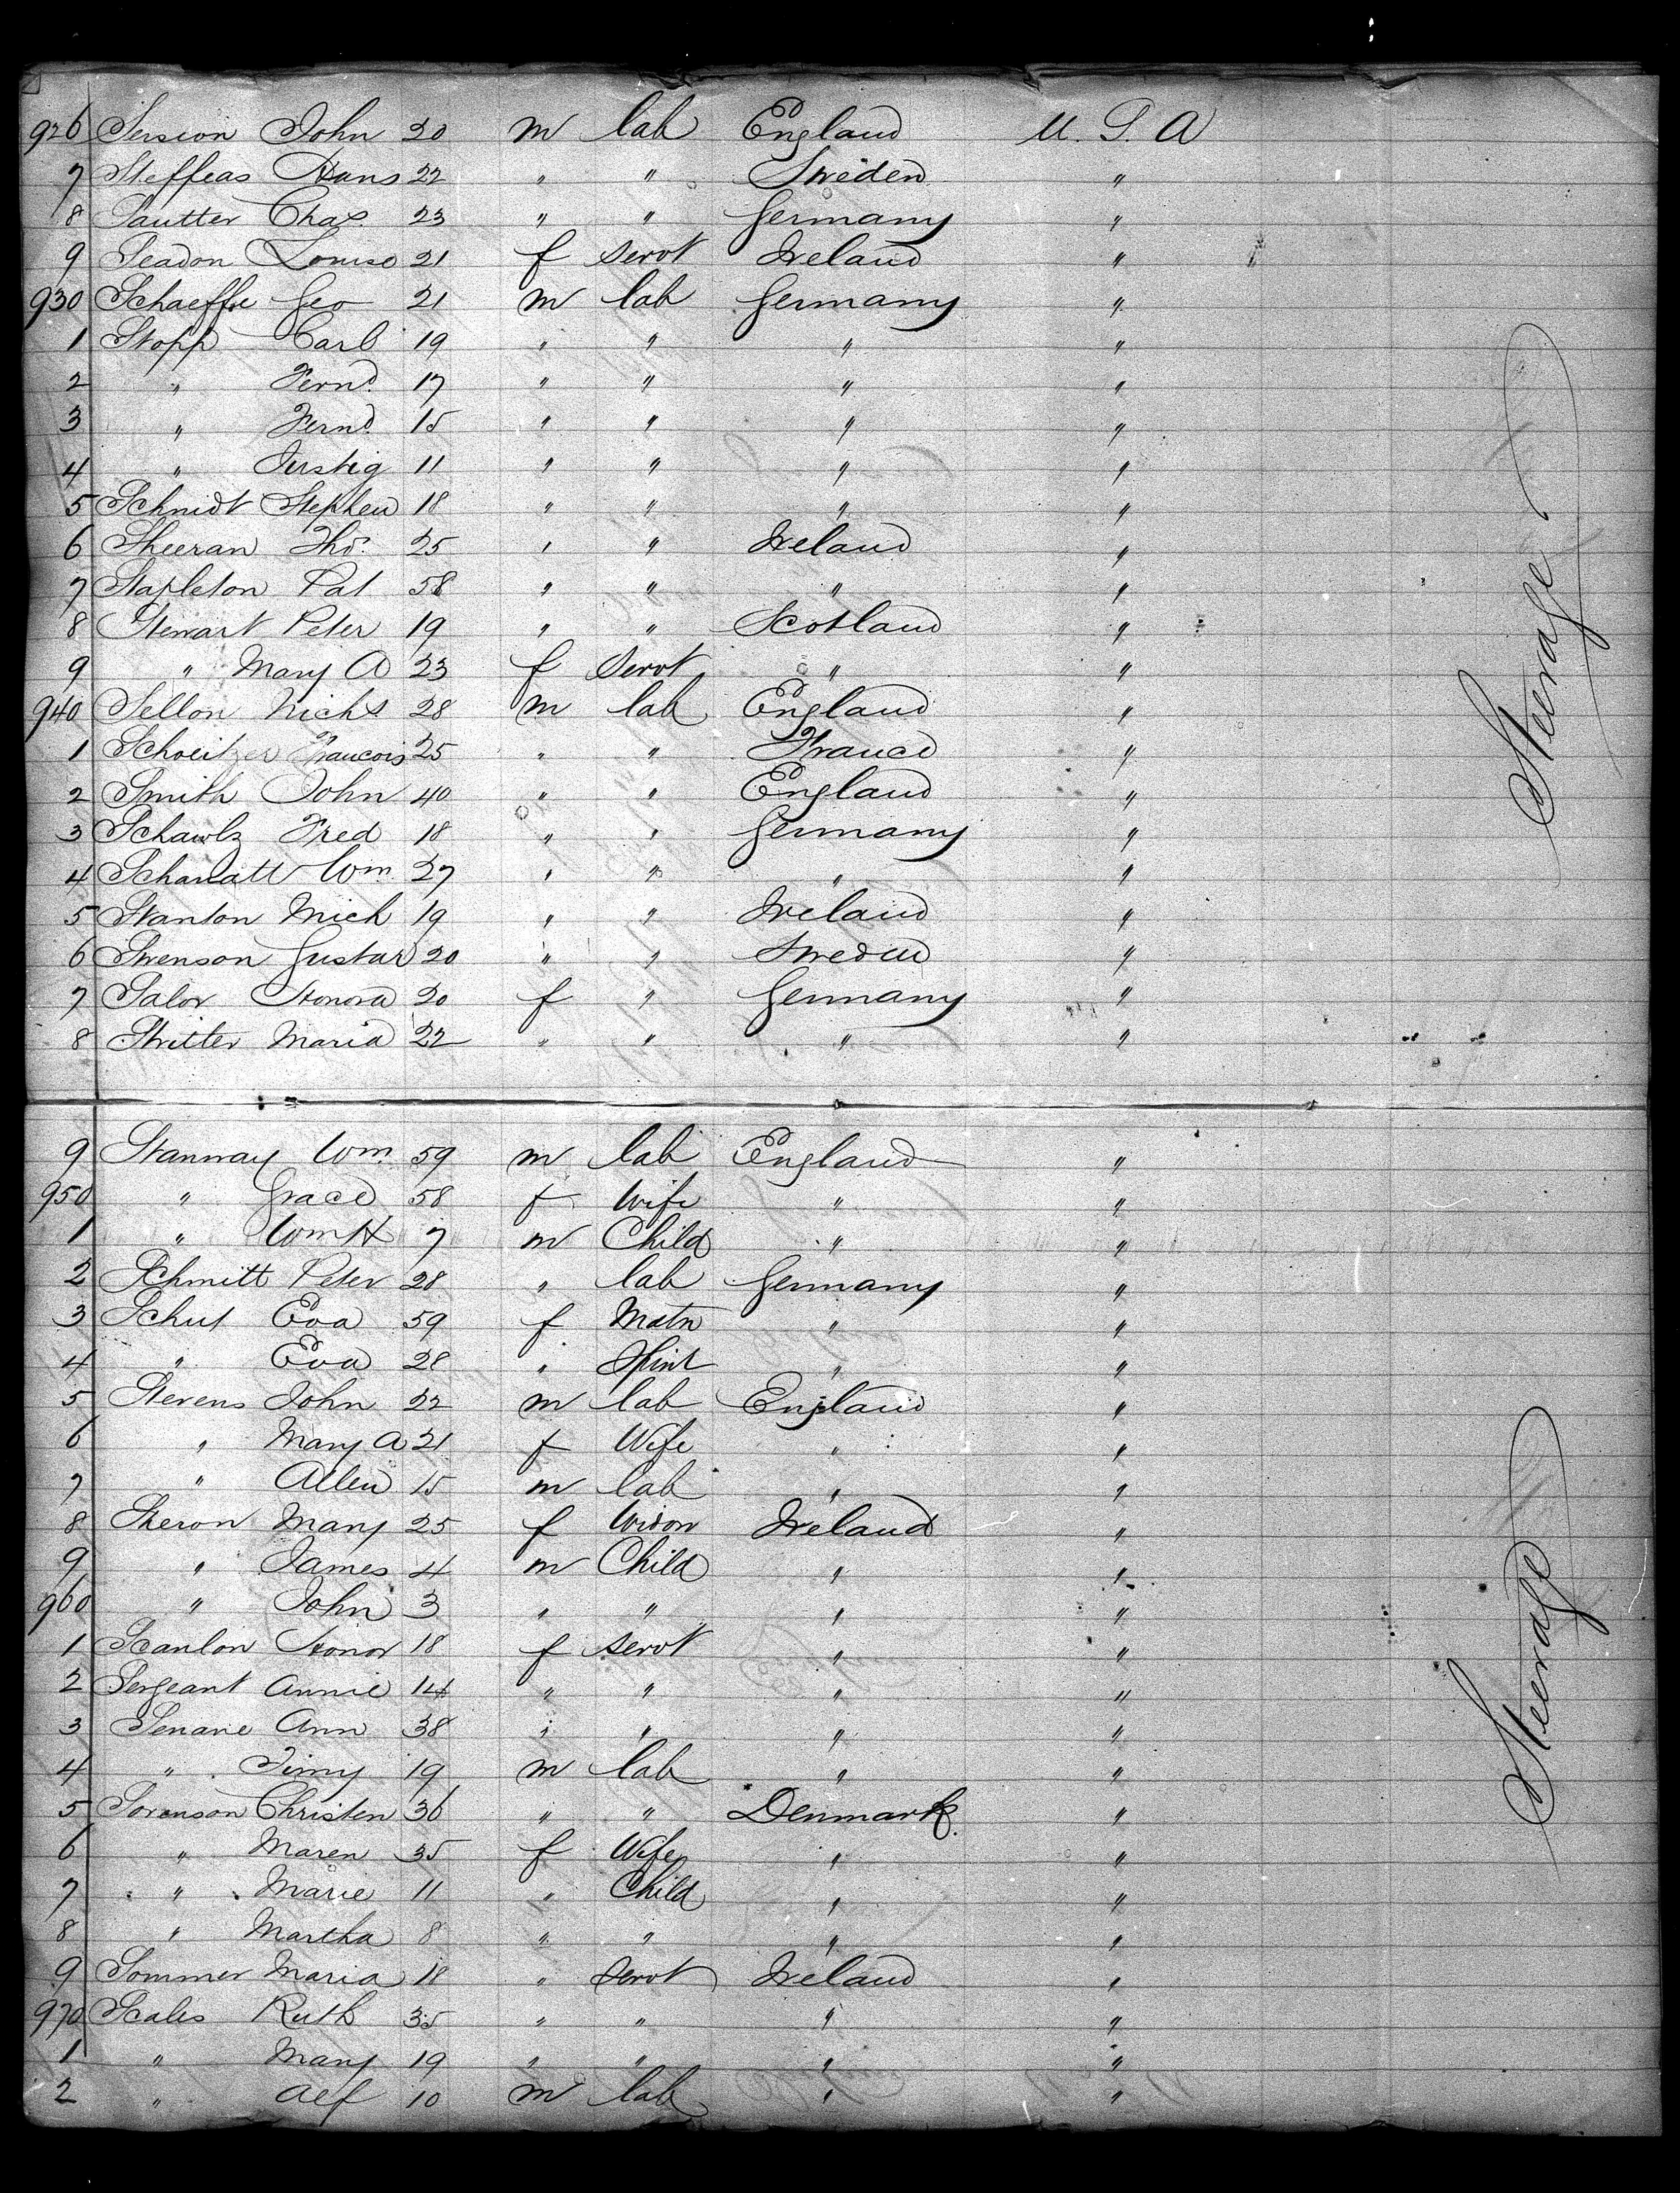 926 Session John 20 m lab England U. S. A
7 Steffeas Hans 22 " " Sweden "
8 Sautter Chas. 23 " " Germany "
9 Seadon Louise 21 f servt Ireland "
930 Schaeffe Geo 21 m lab Germany "
1 Stopp Carl 19 " " " "
2 " Fernd. 17 " " " "
3 " Fernd. 15 " " " "
4 " 11 " " " "
5 Schmidt Stephen 18 " " " "
6 Sheeran Thos. 25 " " Ireland "
7 Stapleton Pat 58 " " " "
8 Stewart Peter 19 " " Scotland "
9 " Mary A 23 f Servt " "
940 Sellon Nichs 28 m lab England "
1 Schoeitzer Francois 25 " " France "
2 Smith John 40 " " England "
3 Schawlz Fred 18 " " Germany "
4 Schanatt Wm. 27 " " " "
5 Stanton Mich 19 " " Ireland "
6 Swenson Gustav 20 " " Sweden "
7 Salor Honora 20 f " Germany "
8 Stritter Maria 22 " " " "
Steerage
9 Stanway Wm. 59 m lab England "
950 " Grace 58 f Wife " "
1 " Wm H 7 m Child " "
2 Schmitt Peter 28 " lab Germany "
3 Schut Eva 59 f Matn " "
4 " Eva 28 " Spint " "
5 Stevens John 22 m lab England "
6 " Mary A 21 f Wife " "
7 " Allen 15 m lab " "
8 Sheron Mary 25 f Widow Ireland "
9 " James 4 m Child " "
960 " John 3 " " " "
1 Scanlon Honor 18 f servt " "
2 Sergeant Annie 14 " " " "
3 Senane Ann 38 " " " "
4 " Timy 19 m lab " "
5 Sorenson Christen 36 " " Denmark. "
6 " Maren 35 f Wife " "
7 " Marie 11 " Child " "
8 " Martha 8 " " " "
9 Sommer Maria 18 " Servt Ireland "
970 Scales Ruth 35 " " " "
1 " Mary 19 " " " "
2 " Alf 10 m lab " "
Steerage